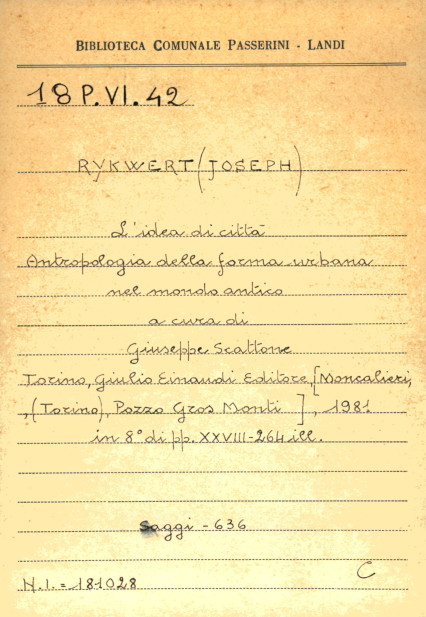 BIBLIOTECA COMUNALE PASSERINI - LANDI
18 P.VI.42
RYKWERT (JOSEPH)
L'idea di città
Antropologia della forma urbana
nel mondo antico
a cura di
Giuseppe Scattone
Torino, Giulio Einaudi Editore, [Moncalieri,
, (Torino), Pozzo Gros Monti ], 1981
in 8° di pp. XXVIII-264 ill.
Saggi - 636
C
N.I. = 181028